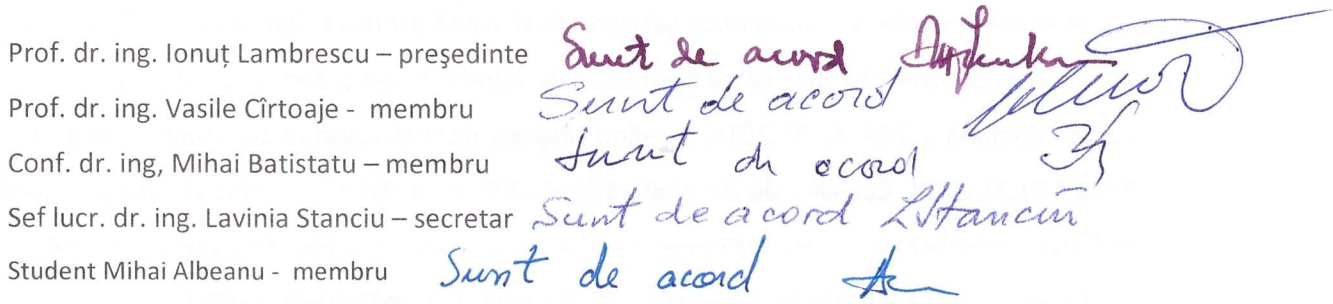 Prof. dr. ing. Ionuț Lambrescu – președinte Sunt de acord
Prof. dr. ing. Vasile Cîrtoaje - membru Sunt de acord
Conf. dr. ing, Mihai Batistatu – membru Sunt de acord
Sef lucr. dr. ing. Lavinia Stanciu – secretar Sunt de acord LStanciu
Student Mihai Albeanu - membru Sunt de acord